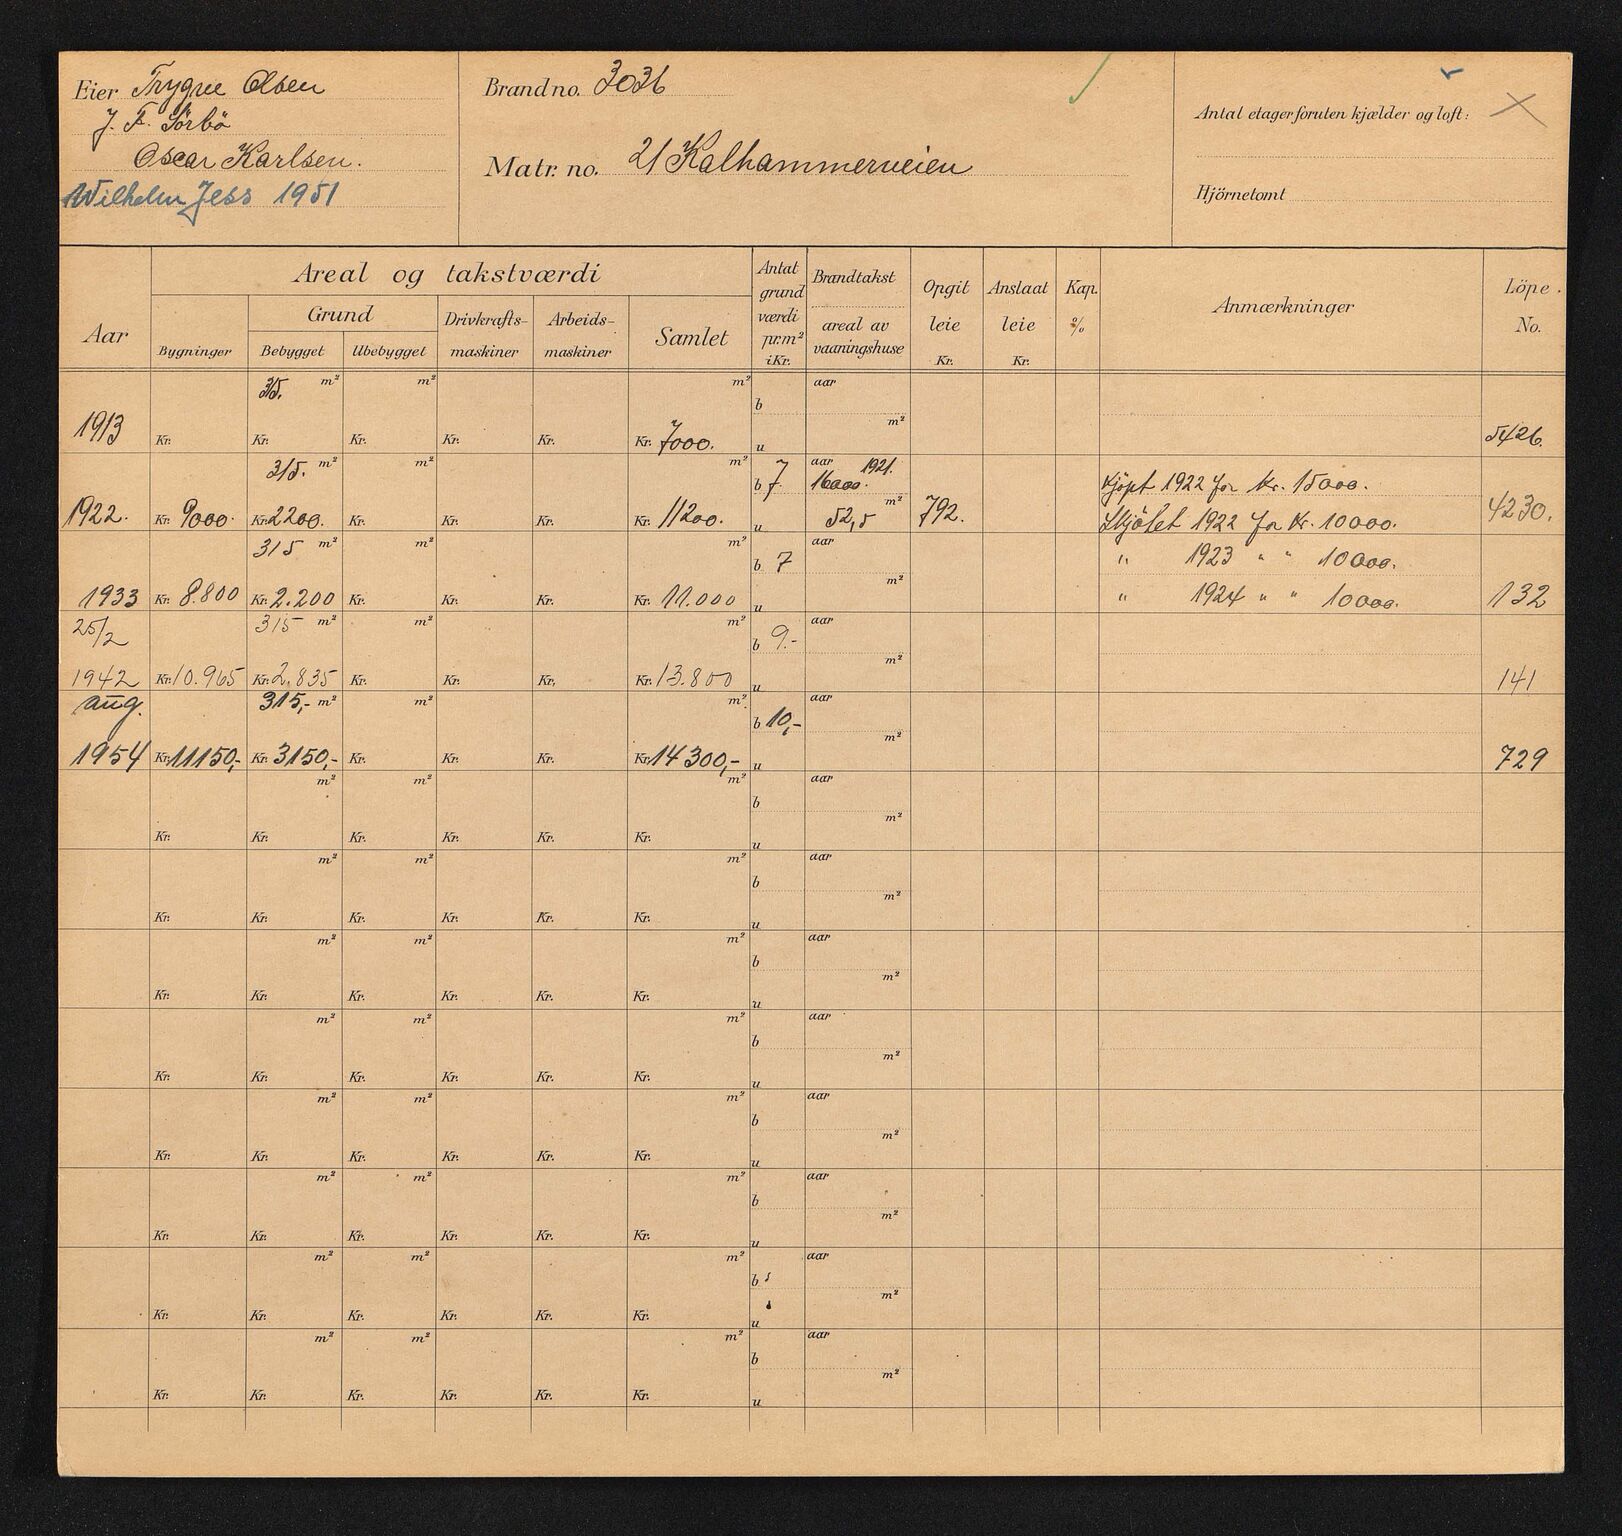 Eier Trygve Olsen
J. F. Sörbö
Oscar Karlsen.
Wilhelm Jess 1951
Brand no. 3036
Matr. no. 21 Kalhammerveien
Antal etager foruten kjælder og loft:
Hjörnetomt
Aar
Areal og takstværdi
Bygninger
Grund
Bebygget
Ubebygget
Drivkrafts-
maskiner
Arbeids-
maskiner
Samlet
Antat
grund
værdi
pr.m²
i Kr.
Brandtakst
areal av
vaaningshuse
Opgit
leie
Kr.
Anslaat
leie
Kr.
Kap.
%
Anmærkninger
Löpe
No.
315. m² m² m² aar
b m²
1913 Kr. Kr. Kr. Kr. Kr. Kr. 7000. u 5426.
315. m² m² m² aar 1921.
b 7. 16000. m² Kjöpt 1922 for Kr. 15000.
1922. Kr. 9000. Kr. 2200. Kr. Kr. Kr. Kr. 11200. u 52,5 792. Skjötet 1922 for Kr. 10000. 4230.
315 m² m² m² aar
b 7 m² " 1923 " " 10000.
1933 Kr. 8.800 Kr. 2.200 Kr. Kr. Kr. Kr. 11.000 u " 1924 " " 10000. 132
25/2 315 m² m² m² aar
b 9.- m²
1942 Kr. 10.965 Kr. 2.835 Kr. Kr. Kr. Kr. 13.800 u 141
aug. 315,- m² m² m² aar
b 10,- m²
1954 Kr. 11150,- Kr. 3150,- Kr. Kr. Kr. Kr. 14300,- u 729
m² m² m² aar
b m²
Kr. Kr. Kr. Kr. Kr. Kr. u
m² m² m² aar
b m²
Kr. Kr. Kr. Kr. Kr. Kr. u
m² m² m² aar
b m²
Kr. Kr. Kr. Kr. Kr. Kr. u
m² m² m² aar
b m²
Kr. Kr. Kr. Kr. Kr. Kr. u
m² m² m² aar
b m²
Kr. Kr. Kr. Kr. Kr. Kr. u
m² m² m² aar
b m²
Kr. Kr. Kr. Kr. Kr. Kr. u
m² m² m² aar
b m²
Kr. Kr. Kr. Kr. Kr. Kr. u
m² m² m² aar
b m²
Kr. Kr. Kr. Kr. Kr. Kr. u